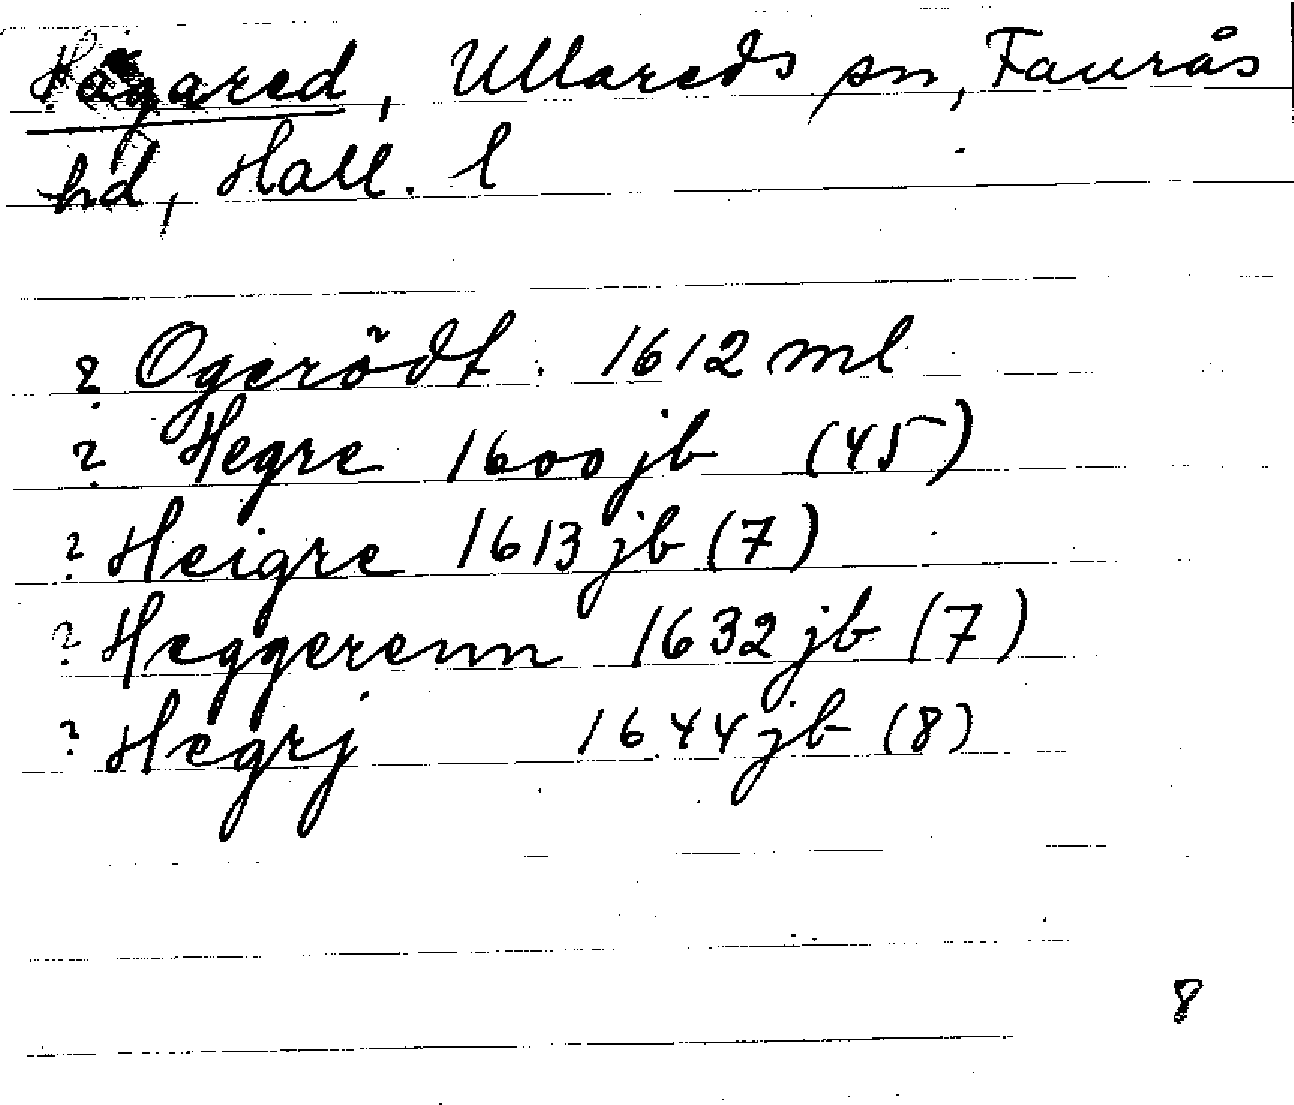 Hågared, Ullareds sn, Faurås
hd, Hall. l
? Ogerödt. 1612 ml
? Hegre 1600 jb (45)
? Heigre 1613 jb (7)
? Heggerenn 1632 jb (7)
? Hegrj 1644 jb (8)
8